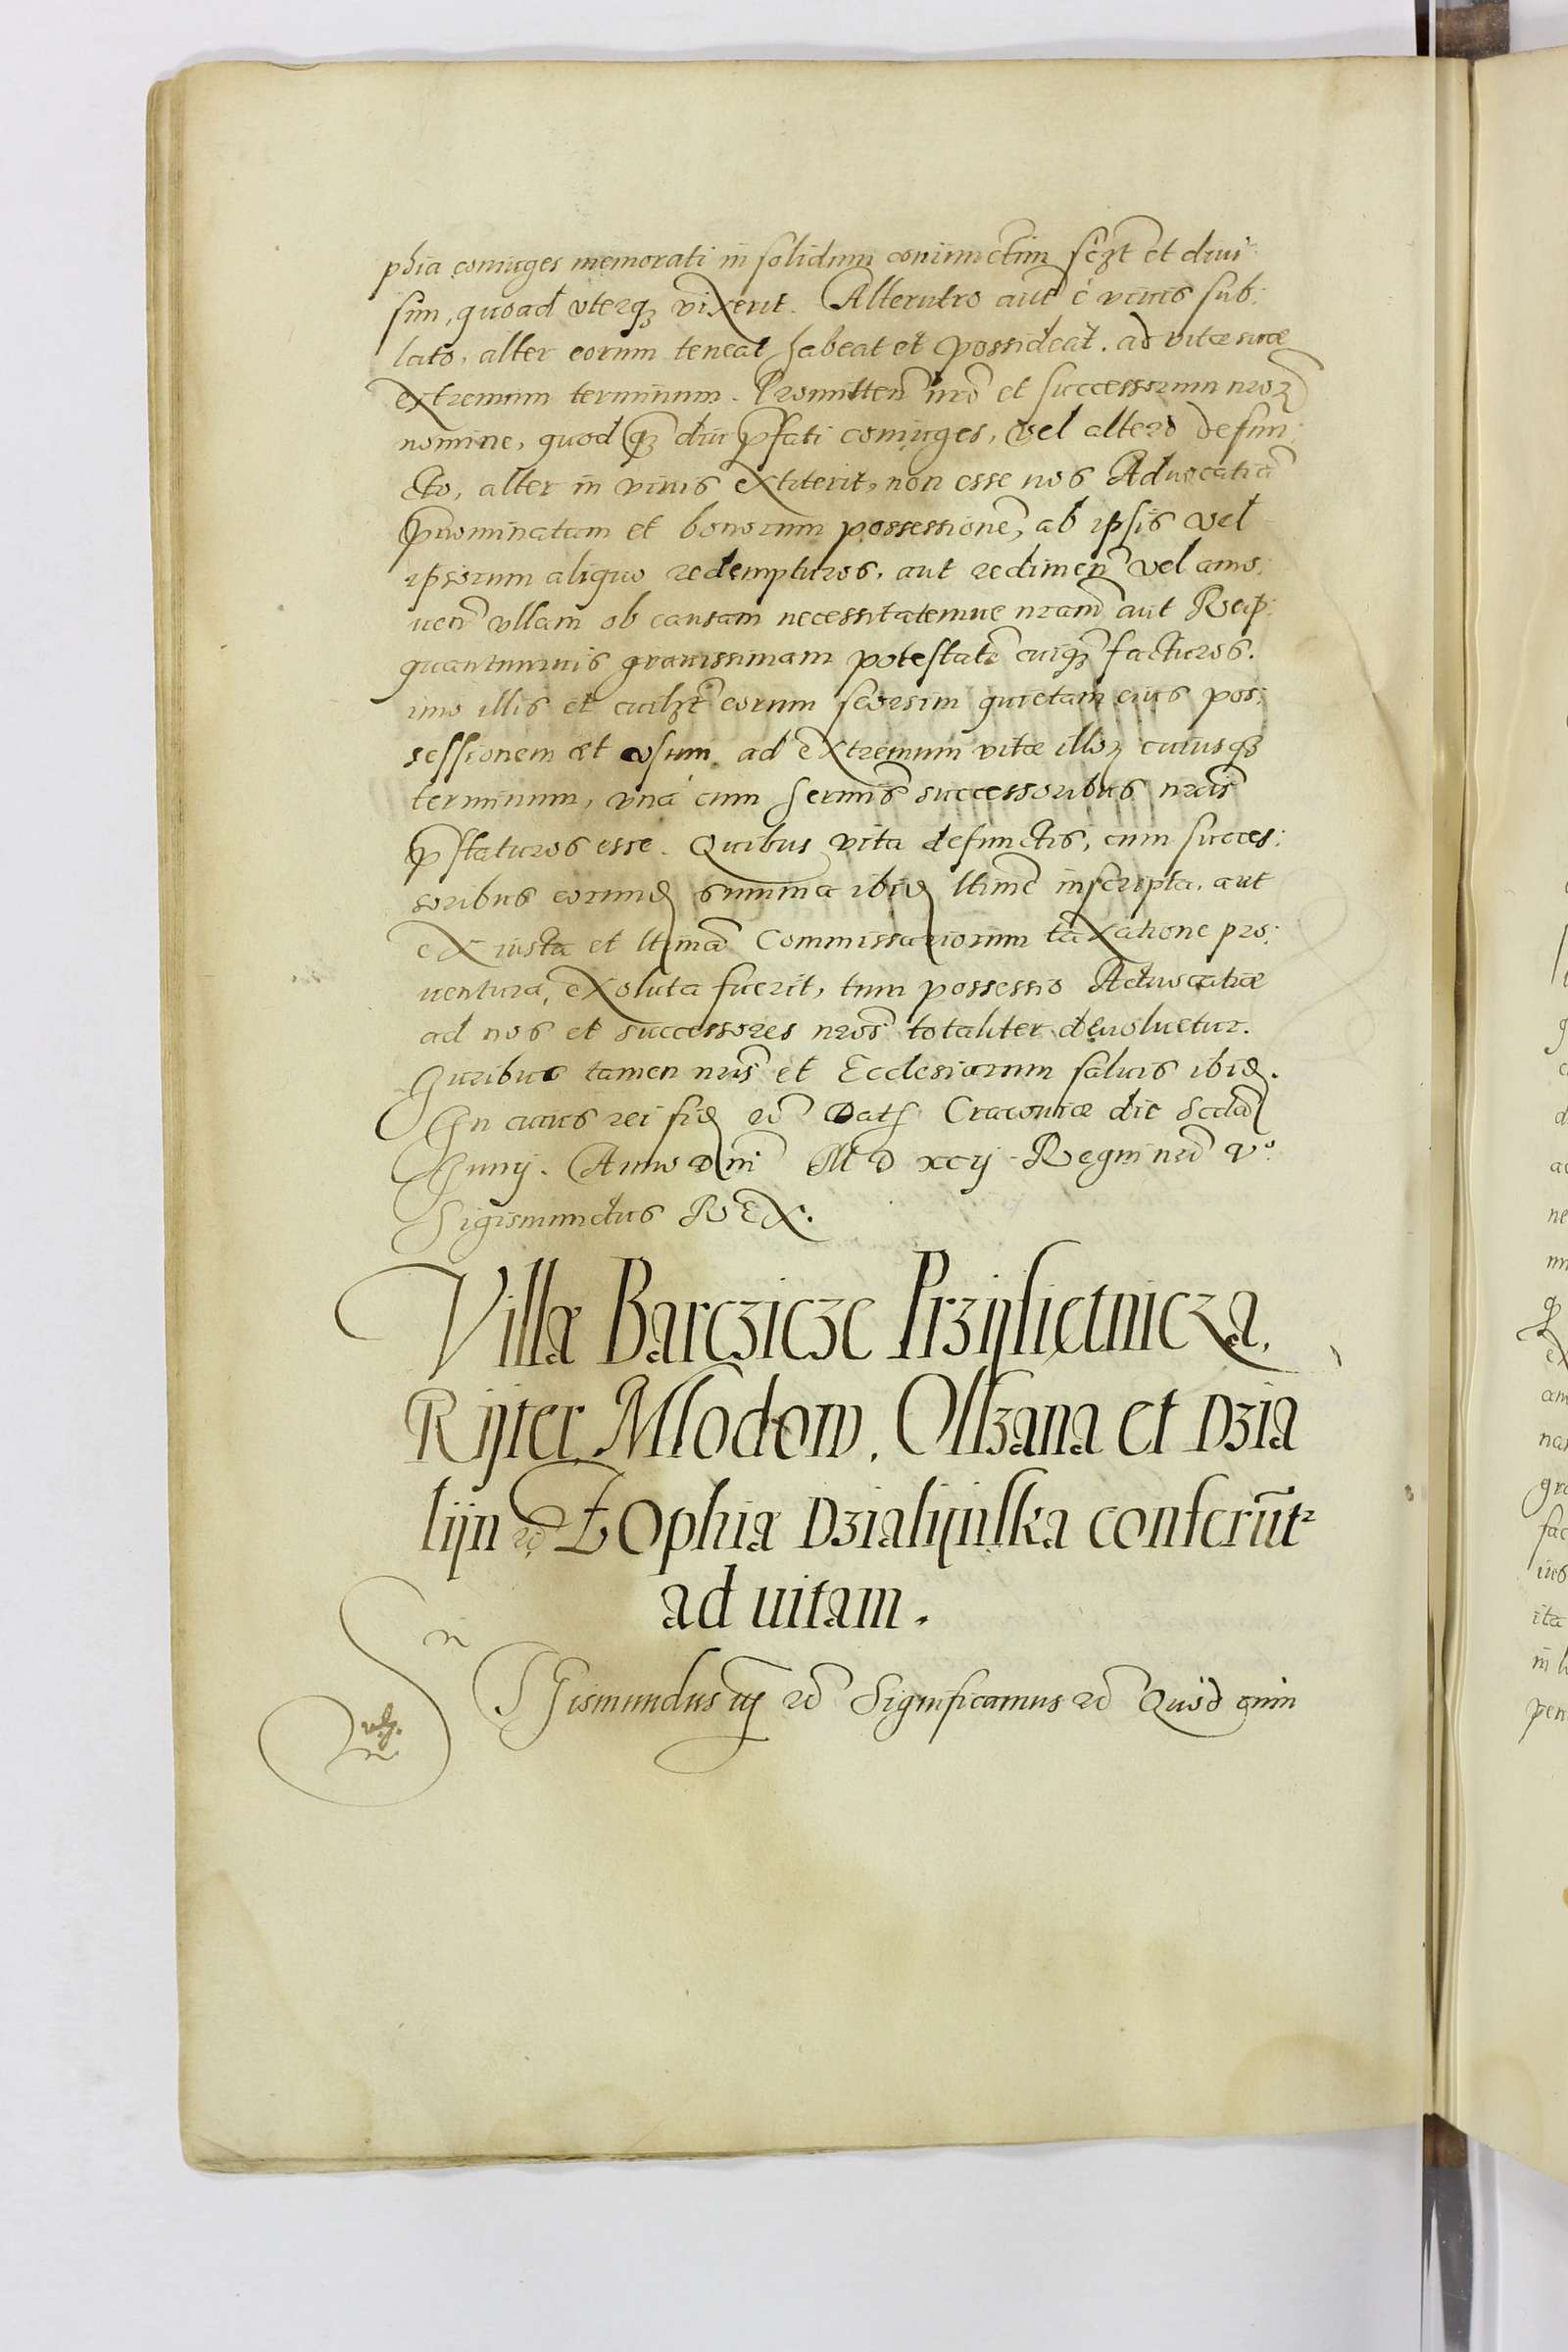 phia coniuges memorati in solidum coniunctim sczt et diui
sim, quoad vterqz vixerit. Alterutro aut è viuis sub:
lato, alter eorum teneat habeat et possideat. ad vitæ suæ
extremum terminum. Promitten nro et successorum nroz
nomine, quod qz diu pfati coniuges, vel altero defun:
cto, alter in viuis extiterit, non esse nos Aduocatia
pnominatam et bonorum possessione, ab ipsis vel
ipsorum aliquo redempturos, aut redimen vel amo:
uen vllam ob causam necessitatemue nram aut Reip:
quantumuis grauissimam potestate cuiqz facturos.
imo illis et cuilzt eorum seorsim quietam eius pos:
sessionem et vsum. ad extremum vitæ illoz cuiusqz
terminum, vná cum sermis successoribus nris
pstaturos esse. Quibus vita defunctis, cum succes:
soribus eorund summa ibid ltime inscripta, aut
ex iusta et ltima Commissariorum taxatione pro:
uentura, exoluta fuerit, tum possessio Aduocatiæ
ad nos et successores nros totaliter deuoluetur.
Iuribus tamen nris et Ecclesiarum saluis ibid.
In cuius rei fid etc Dat Cracouiæ die Scda
Iunij. Anno Dni M D xcij Regni nri Vº
Sigismundus REX.
Villæ Barczicze Przysietnicza.
Ryter Mlodow. Olszana et Dzia
lyn etc Zophiæ Dzialynska conferūtr
ad uitam.
Sigismundus iij etc Significamus etc Quod cum